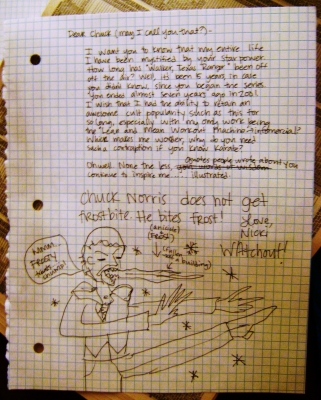 Dear Chuck (may I call you that?) -
I want you to know that my entire life
I have been mystified by your star power.
How long has "Walker, Texas Ranger" been off
off the air? Well, its been 5 years, in case
you didn't know, since you began the series
You ended almost seven years ago in 2001.
I wish that I had the ability to retain an
awesome cult popularity such as this for
so long, especially with my only work being
the Lean and Mean Workout Machine infomercial?
makes me wonder, why do you need
such a contraption if you know Karate?
Ohwell. None the less, quotes people write about you
continue to inspire me. Illustrated:
Chuck Norris does not get
frostbite. He bites frost!
(an icicle)
(FROST)
(from a building)
Love,
Nicki
WAtchout!
FROSTY